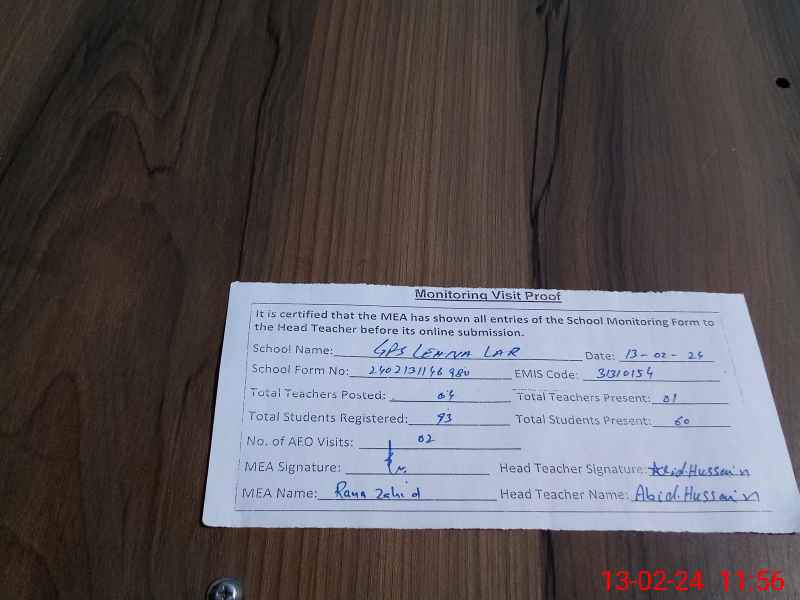 Monitoring Visit Proof
It is certified that the MEA has shown all entries of the School Monitoring Form to
the Head Teacher before its online submission.
School Name: GPS LEHNA LAR Date: 13-02-24
School Form No: 2402131146980 EMIS Code: 31310154
Total Teachers Posted: 04 Total Teachers Present: 01
Total Students Registered: 93 Total Students Present: 60
No. of AEO Visits: 02
MEA Signature: Head Teacher Signature: Abid.Hussain
MEA Name: Rana Zahid Head Teacher Name: Abid.Hussain
13-02-24 11:56